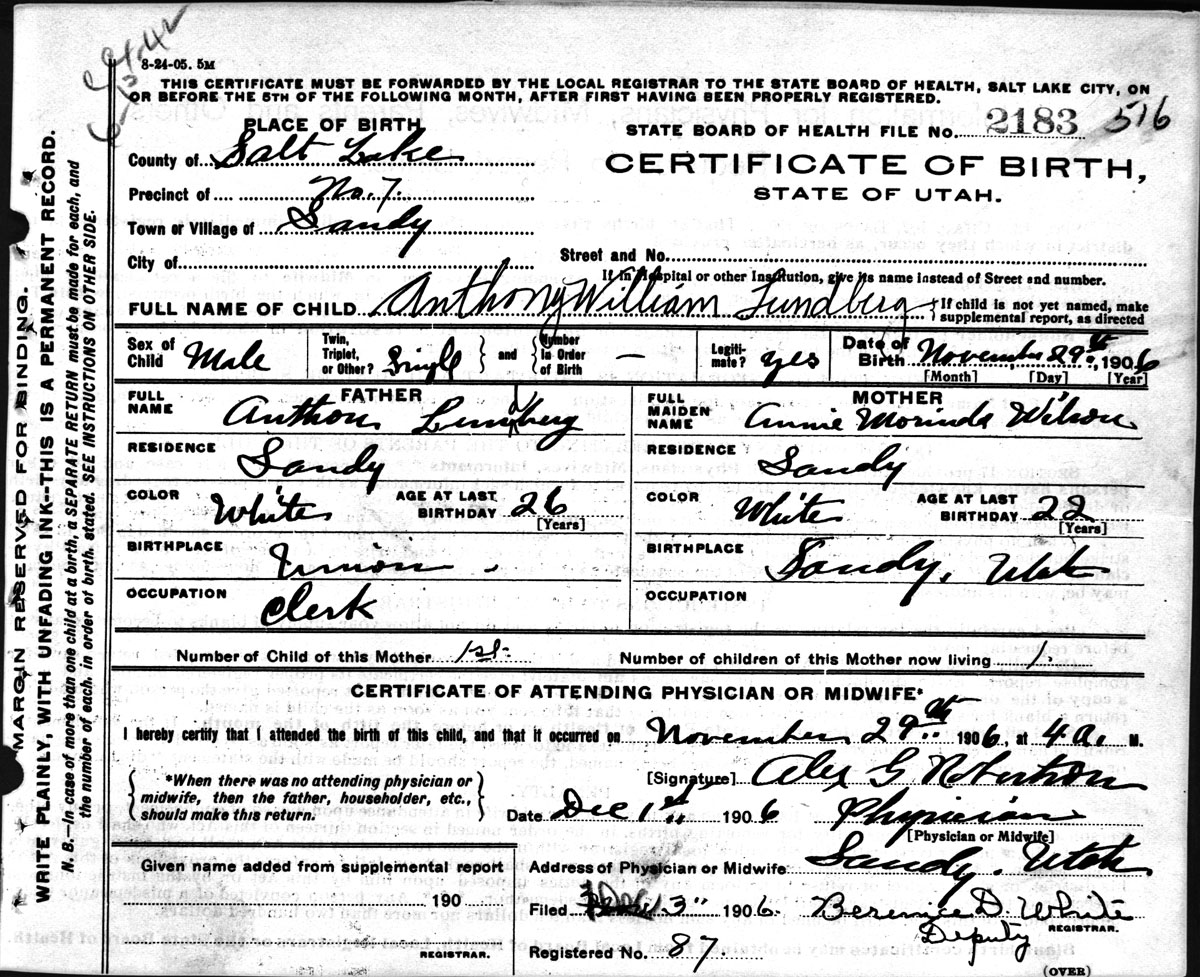 8-24-05. 5M
THIS CERTIFICATE MUST BE FORWARDED BY THE LOCAL REGISTRAR TO THE STATE BOARD OF HEALTH, SALT LAKE CITY, ON
OR BEFORE THE 5TH OF THE FOLLOWING MONTH, AFTER FIRST HAVING BEEN PROPERLY REGISTERED.
PLACE OF BIRTH
STATE BOARD OF HEALTH FILE No. 2183 516
County of Salt Lake
CERTIFICATE OF BIRTH,
STATE OF UTAH.
Precinct of No. 7.
Town or Village of Sandy
City of
Street and No.
If in Hospital or other Institution, give its name instead of Street and number.
FULL NAME OF CHILD Anthony William Lundberg
If child is not yet named, make
supplemental report, as directed
Sex of Child Male
Twin, Triplet, or Other? Single and Number In Order of Birth —
Legitimate? yes
Date of Birth November 29th, 1906
[Month] [Day] [Year]
FATHER
FULL NAME Anthon Lundberg
RESIDENCE Sandy
COLOR White
AGE AT LAST BIRTHDAY 26
[Years]
BIRTHPLACE Union
OCCUPATION Clerk
MOTHER
FULL MAIDEN NAME Annie Morinda Wilson
RESIDENCE Sandy
COLOR White
AGE AT LAST BIRTHDAY 22
[Years]
BIRTHPLACE Sandy, Utah
OCCUPATION
Number of Child of this Mother 1st.
Number of children of this Mother now living 1.
CERTIFICATE OF ATTENDING PHYSICIAN OR MIDWIFE*
I hereby certify that I attended the birth of this child, and that it occurred on November 29th 1906, at 4 a. M.
*When there was no attending physician or
midwife, then the father, householder, etc.,
should make this return.
[Signature] Alex G Robertson
Date Dec 1st 1906 Physician
[Physician or Midwife]
Address of Physician or Midwife Sandy. Utah
Given name added from supplemental report
190
REGISTRAR.
Filed 3" 1906. Berenice D. White
Deputy REGISTRAR.
Registered No. 87.
(OVER)
MARGIN RESERVED FOR BINDING.
WRITE PLAINLY, WITH UNFADING INK--THIS IS A PERMANENT RECORD.
N. B.—In case of more than one child at a birth, a SEPARATE RETURN must be made for each, and
the number of each, in order of birth, stated. SEE INSTRUCTIONS ON OTHER SIDE.